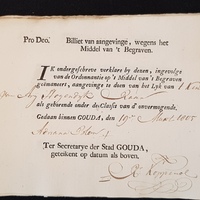 Pro Deo. Billiet van aangevinge, wegens het
Middel van 't Begraven.
IK ondergeschreve verklare by dezen, ingevolge
van de Ordonnantie op 't Middel van 't Begraven
geëmaneert, aangevinge te doen van het Lyk van 1 Kind
van
als gehorende onder de Classis van d'onvermogende.
Gedaan binnen GOUDA, den 19e Maart 1805
Ter Secretarye der Stad GOUDA,
getekent op datum als boven.